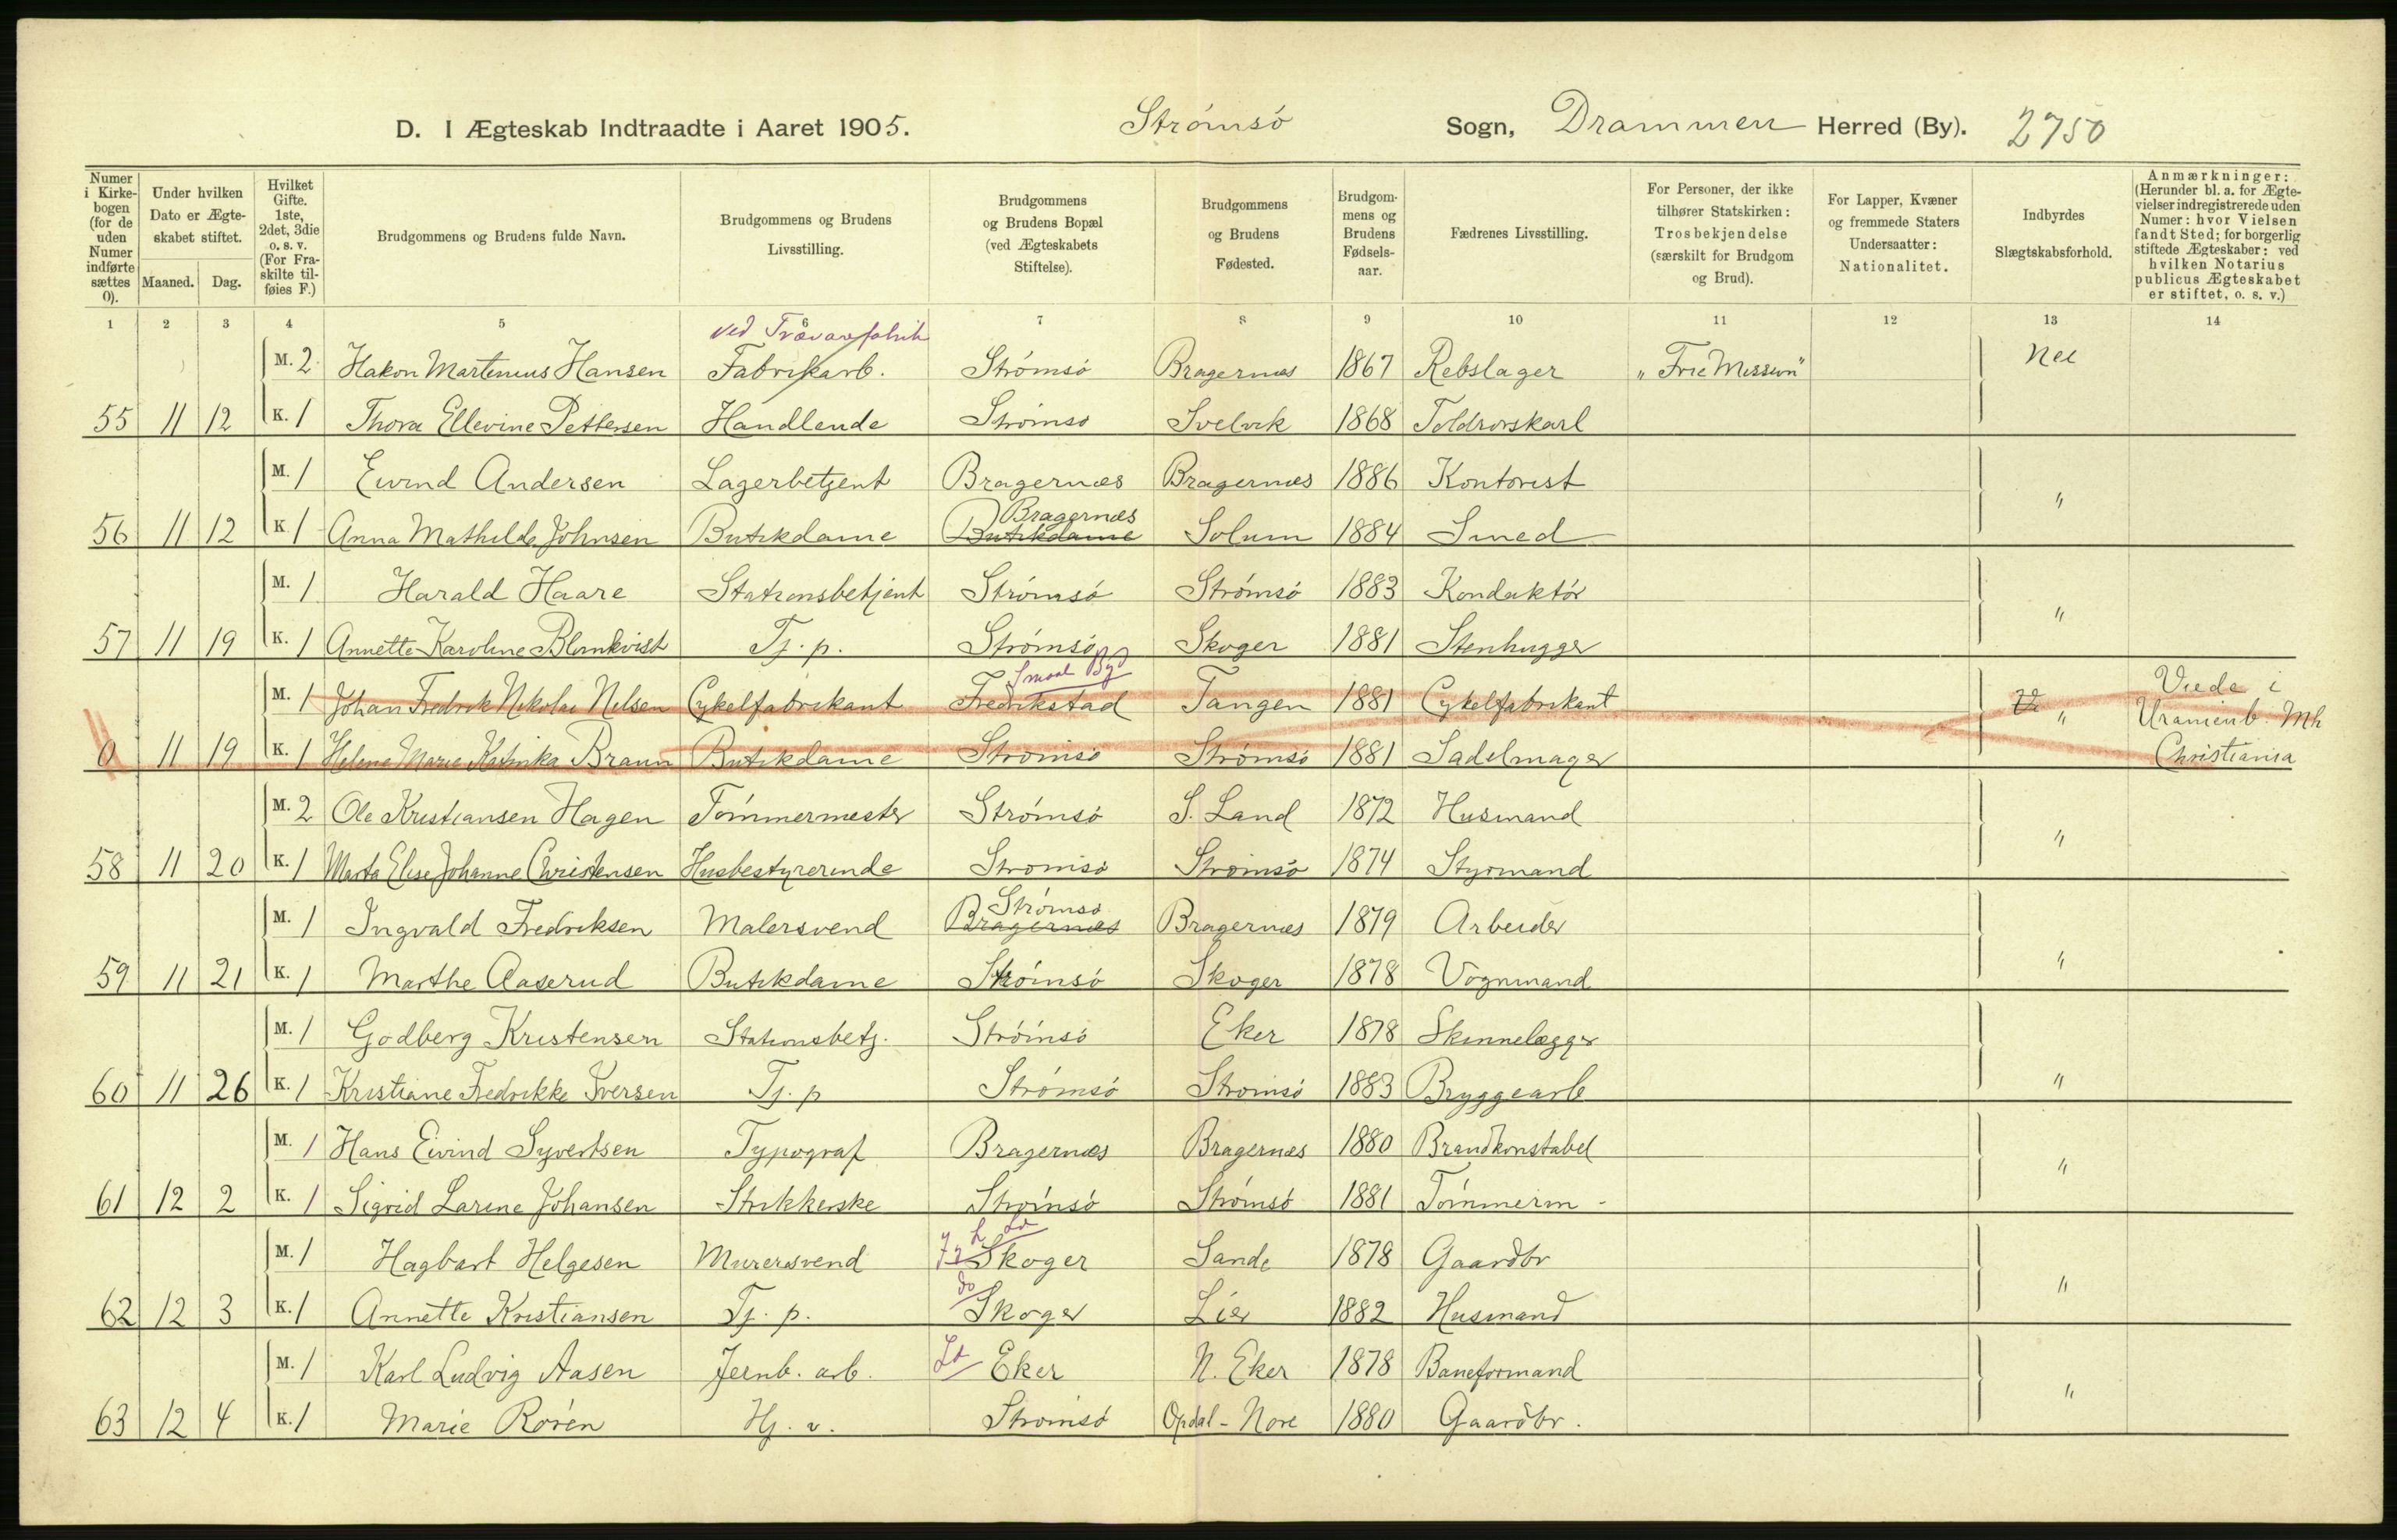 D. I Ægteskab Indtraadte i Aaret 1905. Strømsø Sogn, Drammen Herred (By). 2750
Numer i Kirkebogen (for de uden Numer indførte sættes 0).
Under hvilken Dato er Ægteskabet stiftet.
Maaned. Dag.
Hvilket Gifte. 1ste, 2det, 3die o. s. v. (For Fraskilte tilføies F.)
Brudgommens og Brudens fulde Navn.
Brudgommens og Brudens Livsstilling.
Brudgommens og Brudens Bopæl (ved Ægteskabets Stiftelse).
Brudgommens og Brudens Fødested.
Brudgommens og Brudens Fødselsaar.
Fædrenes Livsstilling.
For Personer, der ikke tilhører Statskirken: Trosbekjendelse (særskilt for Brudgom og Brud).
For Lapper, Kvæner og fremmede Staters Undersaatter: Nationalitet.
Indbyrdes Slægtskabsforhold.
Anmærkninger: (Herunder bl. a. for Ægtevielser indregistrerede uden Numer: hvor Vielsen fandt Sted; for borgerlig stiftede Ægteskaber: ved hvilken Notarius publicus Ægteskabet er stiftet, o. s. v.)
1 2 3 4 5 6 7 8 9 10 11 12 13 14
ved Trævarefabrik
M. 2 Hakon Martenius Hansen Fabrikarb. Strømsø Bragernæs 1867 Rebslager "Frie Mission" Nei
55 11 12 K. 1 Thora Ellevine Pettersen Handlende Strømsø Svelvik 1868 Toldrorskarl
M. 1 Eivind Andersen Lagerbetjent Bragernæs Bragernæs 1886 Kontorist "
Bragernæs
56 11 12 K. 1 Anna Mathilde Johnsen Butikdame Butikdame Solum 1884 Smed
M. 1 Harald Haare Stationsbetjent Strømsø Strømsø 1883 Konduktør "
57 11 19 K. 1 Annette Karoline Blomkvist Tj. p. Strømsø Skoger 1881 Stenhugger
Smaal By
M. 1 Johan Fredrik Nikolai Nilsen Cykelfabrikant Fredrikstad Tangen 1881 Cykelfabrikant " Viede i Uranienb. Mh
0 11 19 K. 1 Helene Marie Katinka Braun Butikdame Strømsø Strømsø 1881 Sadelmager Christiania
M. 2 Ole Kristiansen Hagen Tømmermester Strømsø S. Land 1872 Husmand "
58 11 20 K. 1 Marta Elise Johanne Christensen Husbestyrerinde Strømsø Strømsø 1874 Styrmand
Strømsø
M. 1 Ingvald Fredriksen Malersvend Bragernæs Bragernæs 1879 Arbeider "
59 11 21 K. 1 Marthe Aaserud Butikdame Strømsø Skoger 1878 Vognmand
M. 1 Godberg Kristensen Stationsbetj. Strømsø Eker 1878 Skinnelægger "
60 11 26 K. 1 Kristiane Fredrikke Iversen Tj. p Strømsø Strømsø 1883 Bryggearb
M. 1 Hans Eivind Syvertsen Typograf Bragernæs Bragernæs 1880 Brandkonstabel "
61 12 2 K. 1 Sigrid Larine Johansen Strikkerske Strømsø Strømsø 1881 Tømmerm -
M. 1 Hagbart Helgesen Murersvend Skoger Sande 1878 Gaardbr "
do
62 12 3 K. 1 Annette Kristiansen Tj. p. Skoger Lier 1882 Husmand
M. 1 Karl Ludvig Aasen Jernb. arb. Ld Eker N. Eker 1878 Baneformand "
63 12 4 K. 1 Marie Roren Hj. v. Strømsø Opdal - Nore 1880 Gaardbr.